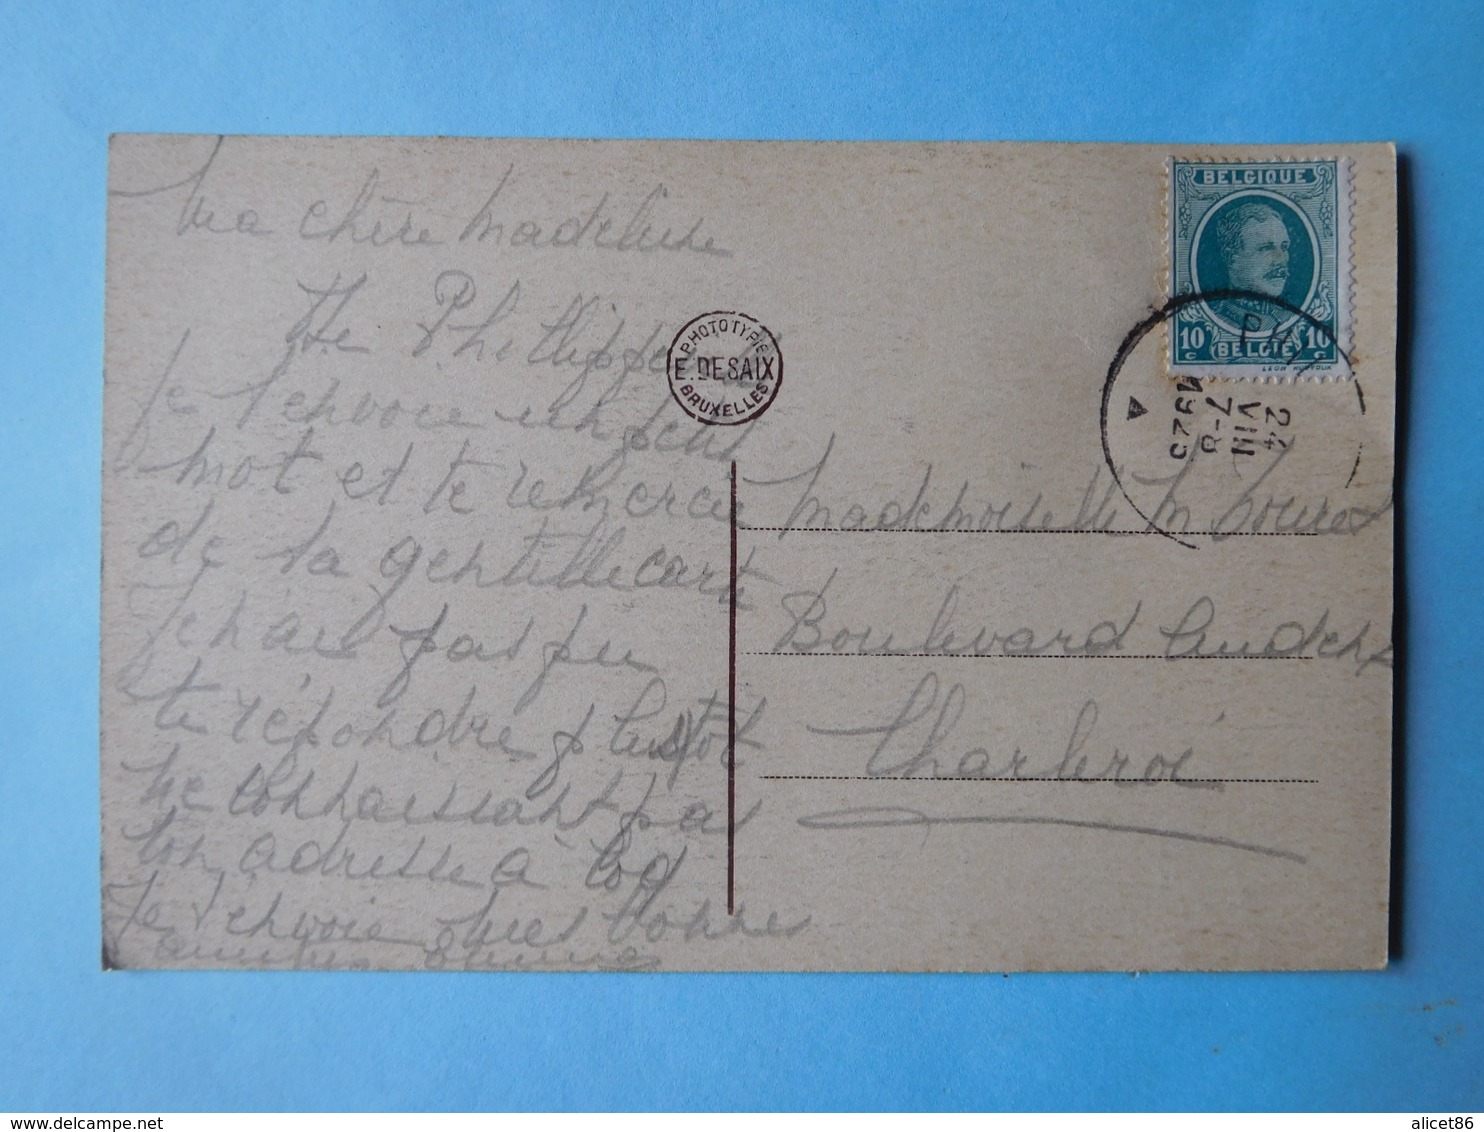 Ma chère Madeleine
Je t'envoie un petit
mot et te remercie
de ta gentille carte
Je n'ai pas pu
te répondre plus tôt
ne connaissant pas
ton adresse à
Je t'envoie mes bonne
PHOTOTYPIE
E. DESAIX
BRUXELLES
BELGIQUE
10 c 10 c
BELGIË
PHI
24
VIII
7-8
1925
A
Mademoiselle M
Boulevard
Charleroi
delcampe.net
alicet86